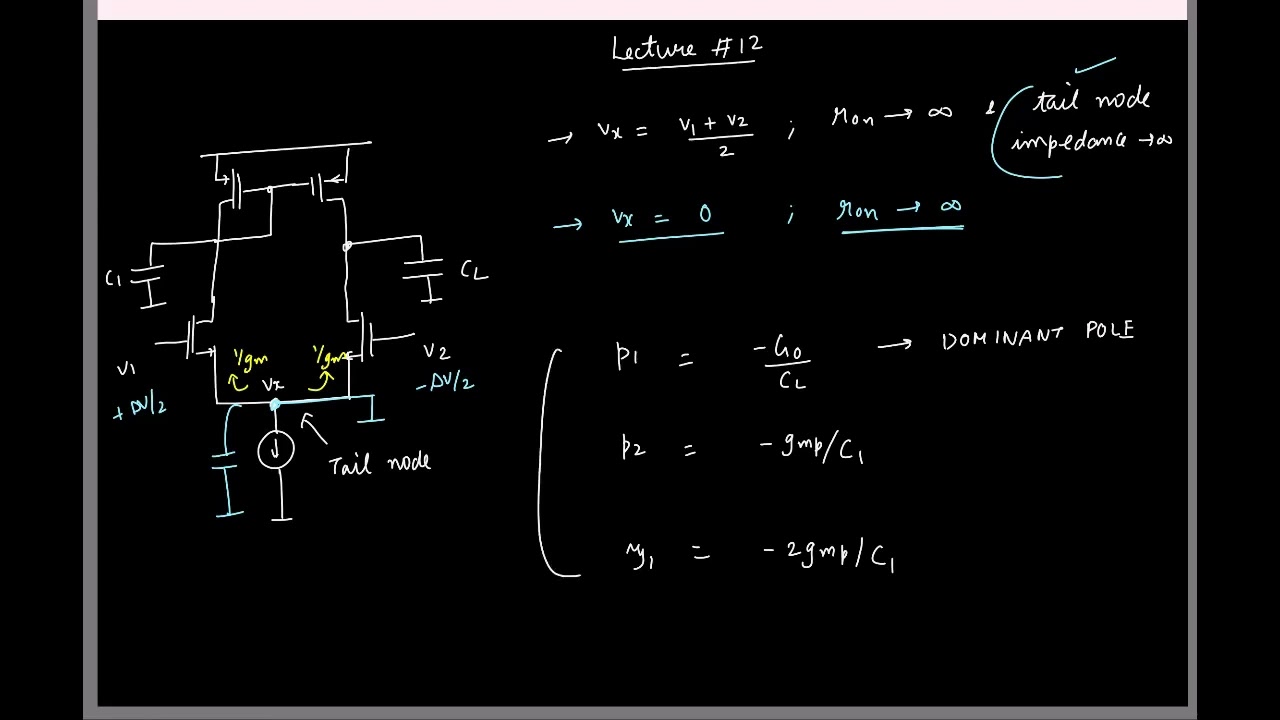 Lecture #12
→ Vx = V1 + V2 / 2 ; ron → ∞ & tail node impedance → ∞
→ Vx = 0 ; ron → ∞
C1
CL
V1
+ΔV/2
1/gm
1/gm
Vx
V2
-ΔV/2
Tail node
p1 = -G0/CL → DOMINANT POLE
p2 = -gmp/C1
z1 = -2gmp/C1